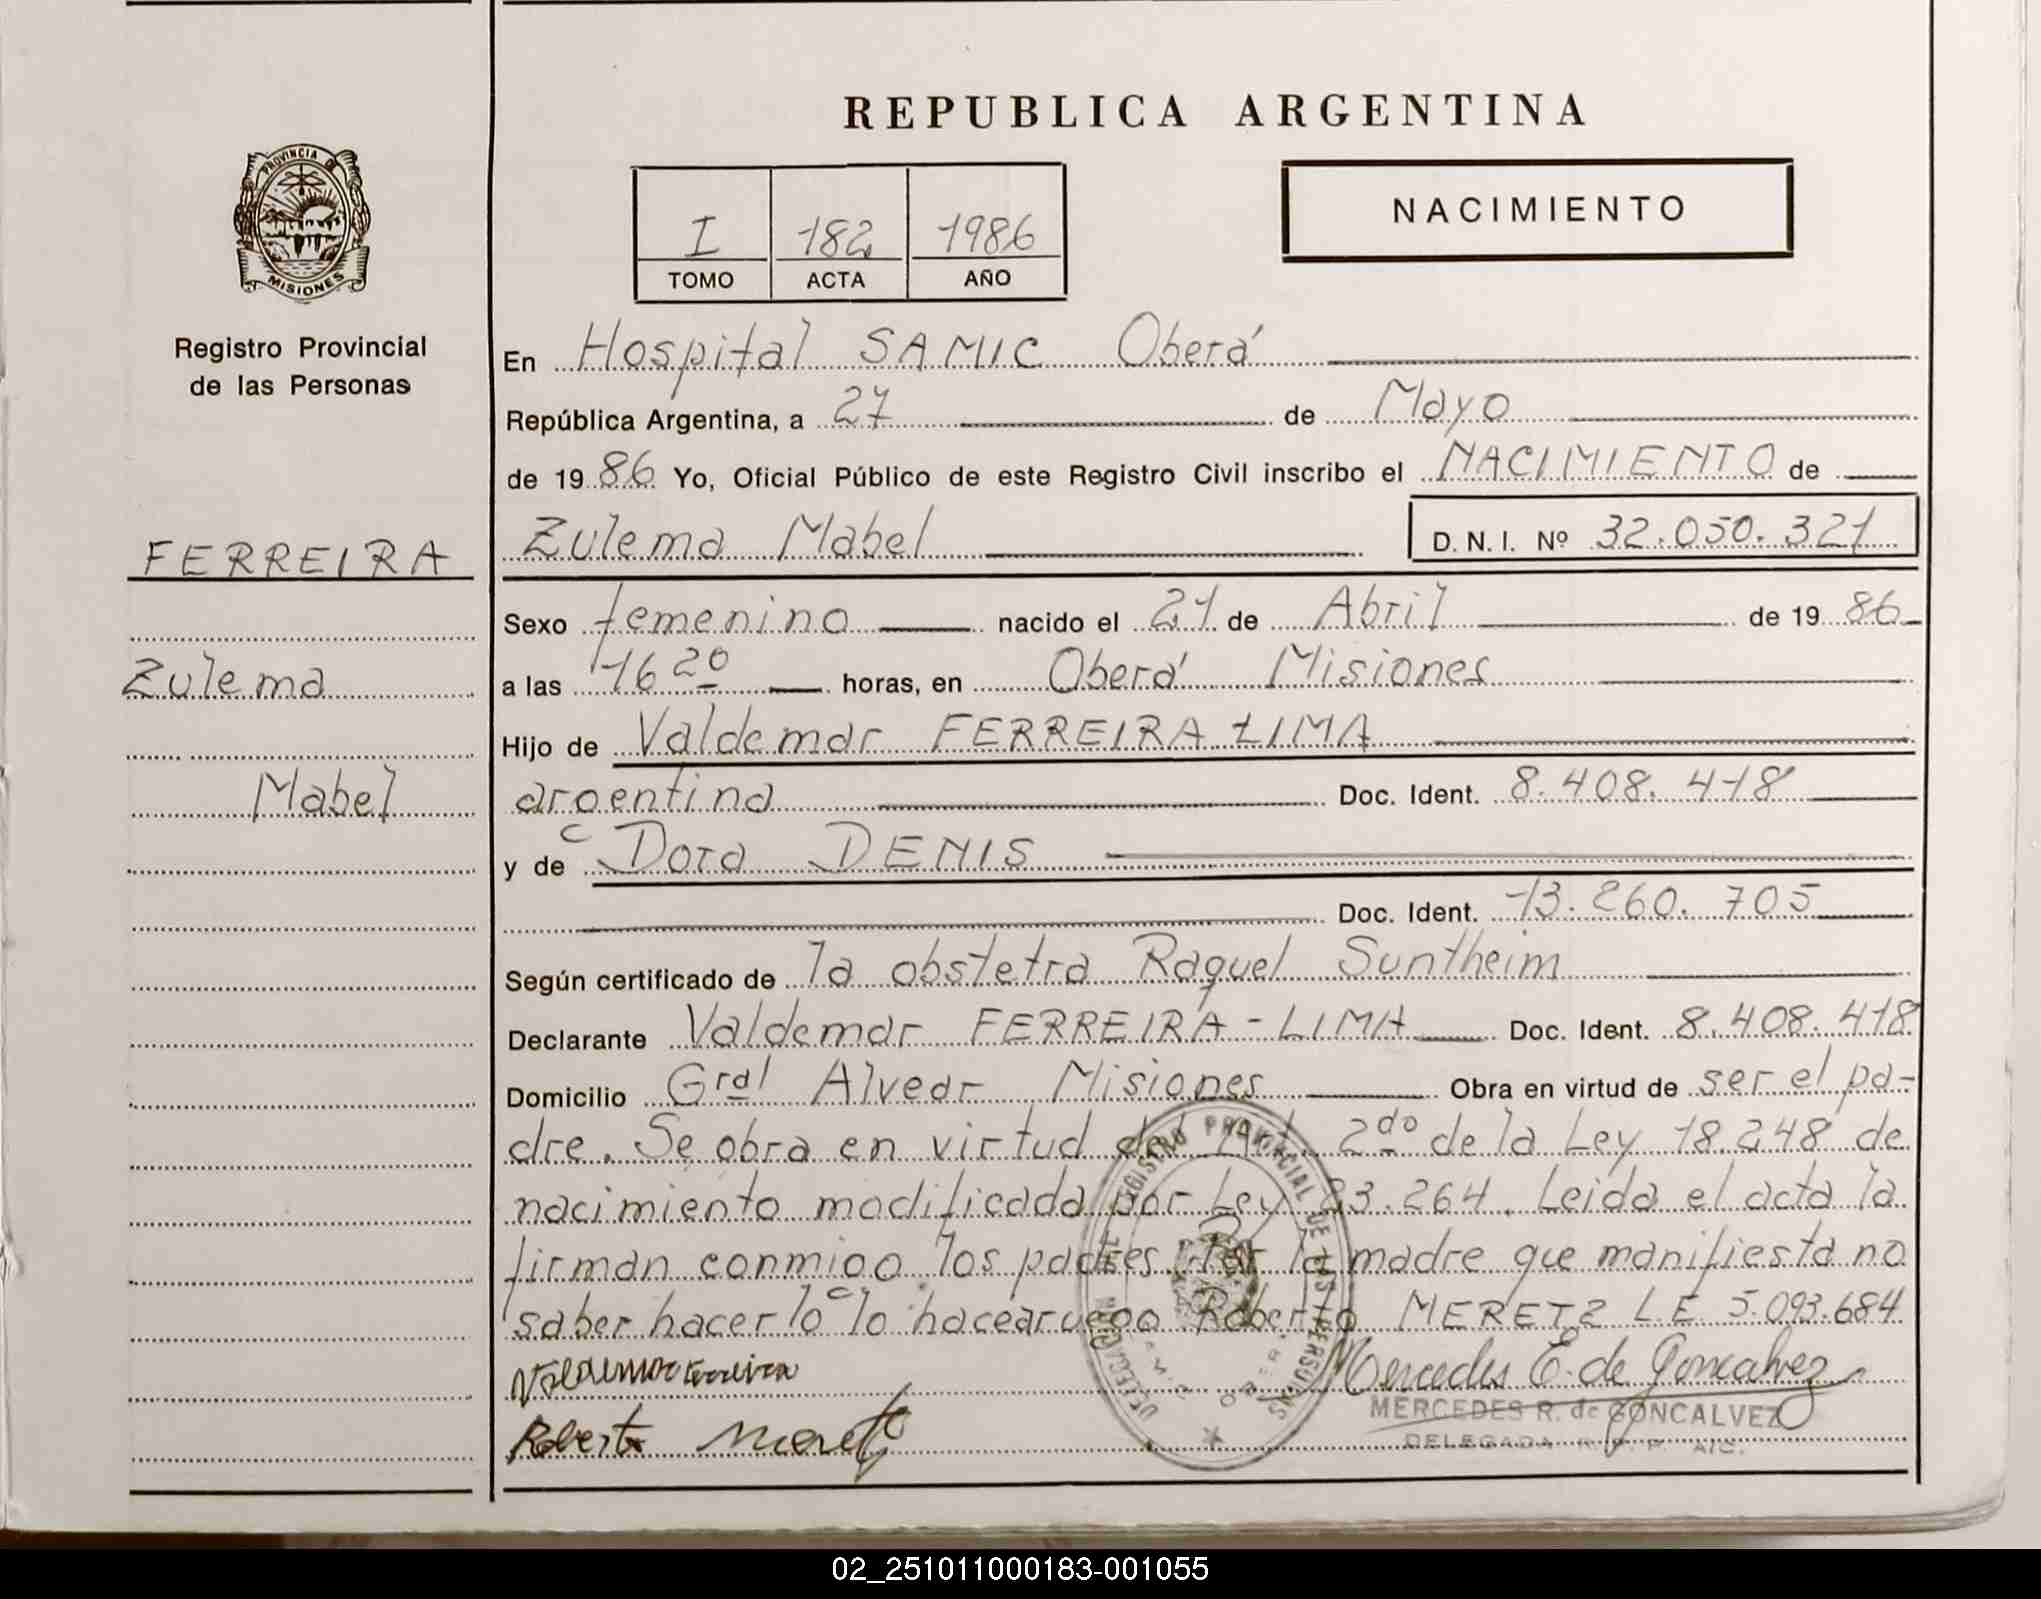 REPUBLICA ARGENTINA
PROVINCIA DE
MISIONES
Registro Provincial
de las Personas
I 182 1986
TOMO ACTA AÑO
NACIMIENTO
En Hospital SAMIC Oberá
República Argentina, a 27 de Mayo
de 1986 Yo, Oficial Público de este Registro Civil inscribo el NACIMIENTO de
FERREIRA
Zulema
Mabel
Zulema Mabel D.N.I. Nº 32.050.321
Sexo femenino nacido el 21 de Abril de 1986
a las 16 20 horas, en Oberá Misiones
Hijo de Valdemar FERREIRA LIMA
argentina Doc. Ident. 8.408.418
y de Dora DENIS
Doc. Ident. 13.260.705
Según certificado de la obstetra Raquel Suntheim
Declarante Valdemar FERREIRA-LIMA Doc. Ident. 8.408.418
Domicilio Gral Alvear Misiones Obra en virtud de ser el pa-
dre. Se obra en virtud del Art. 2do de la Ley 18.248 de
nacimiento modificada por Ley 23.264. Leida el acta la
firman conmigo los padres. Por la madre que manifiesta no
saber hacerlo lo hace a ruego Roberto MERETZ L E 5.093.684
Valdemar Ferreira
Mercedes E. de Goncalvez
MERCEDES R. de GONCALVEZ
Roberto
DELEGADA
REGISTRO PROVINCIAL DE LAS PERSONAS
02_251011000183-001055